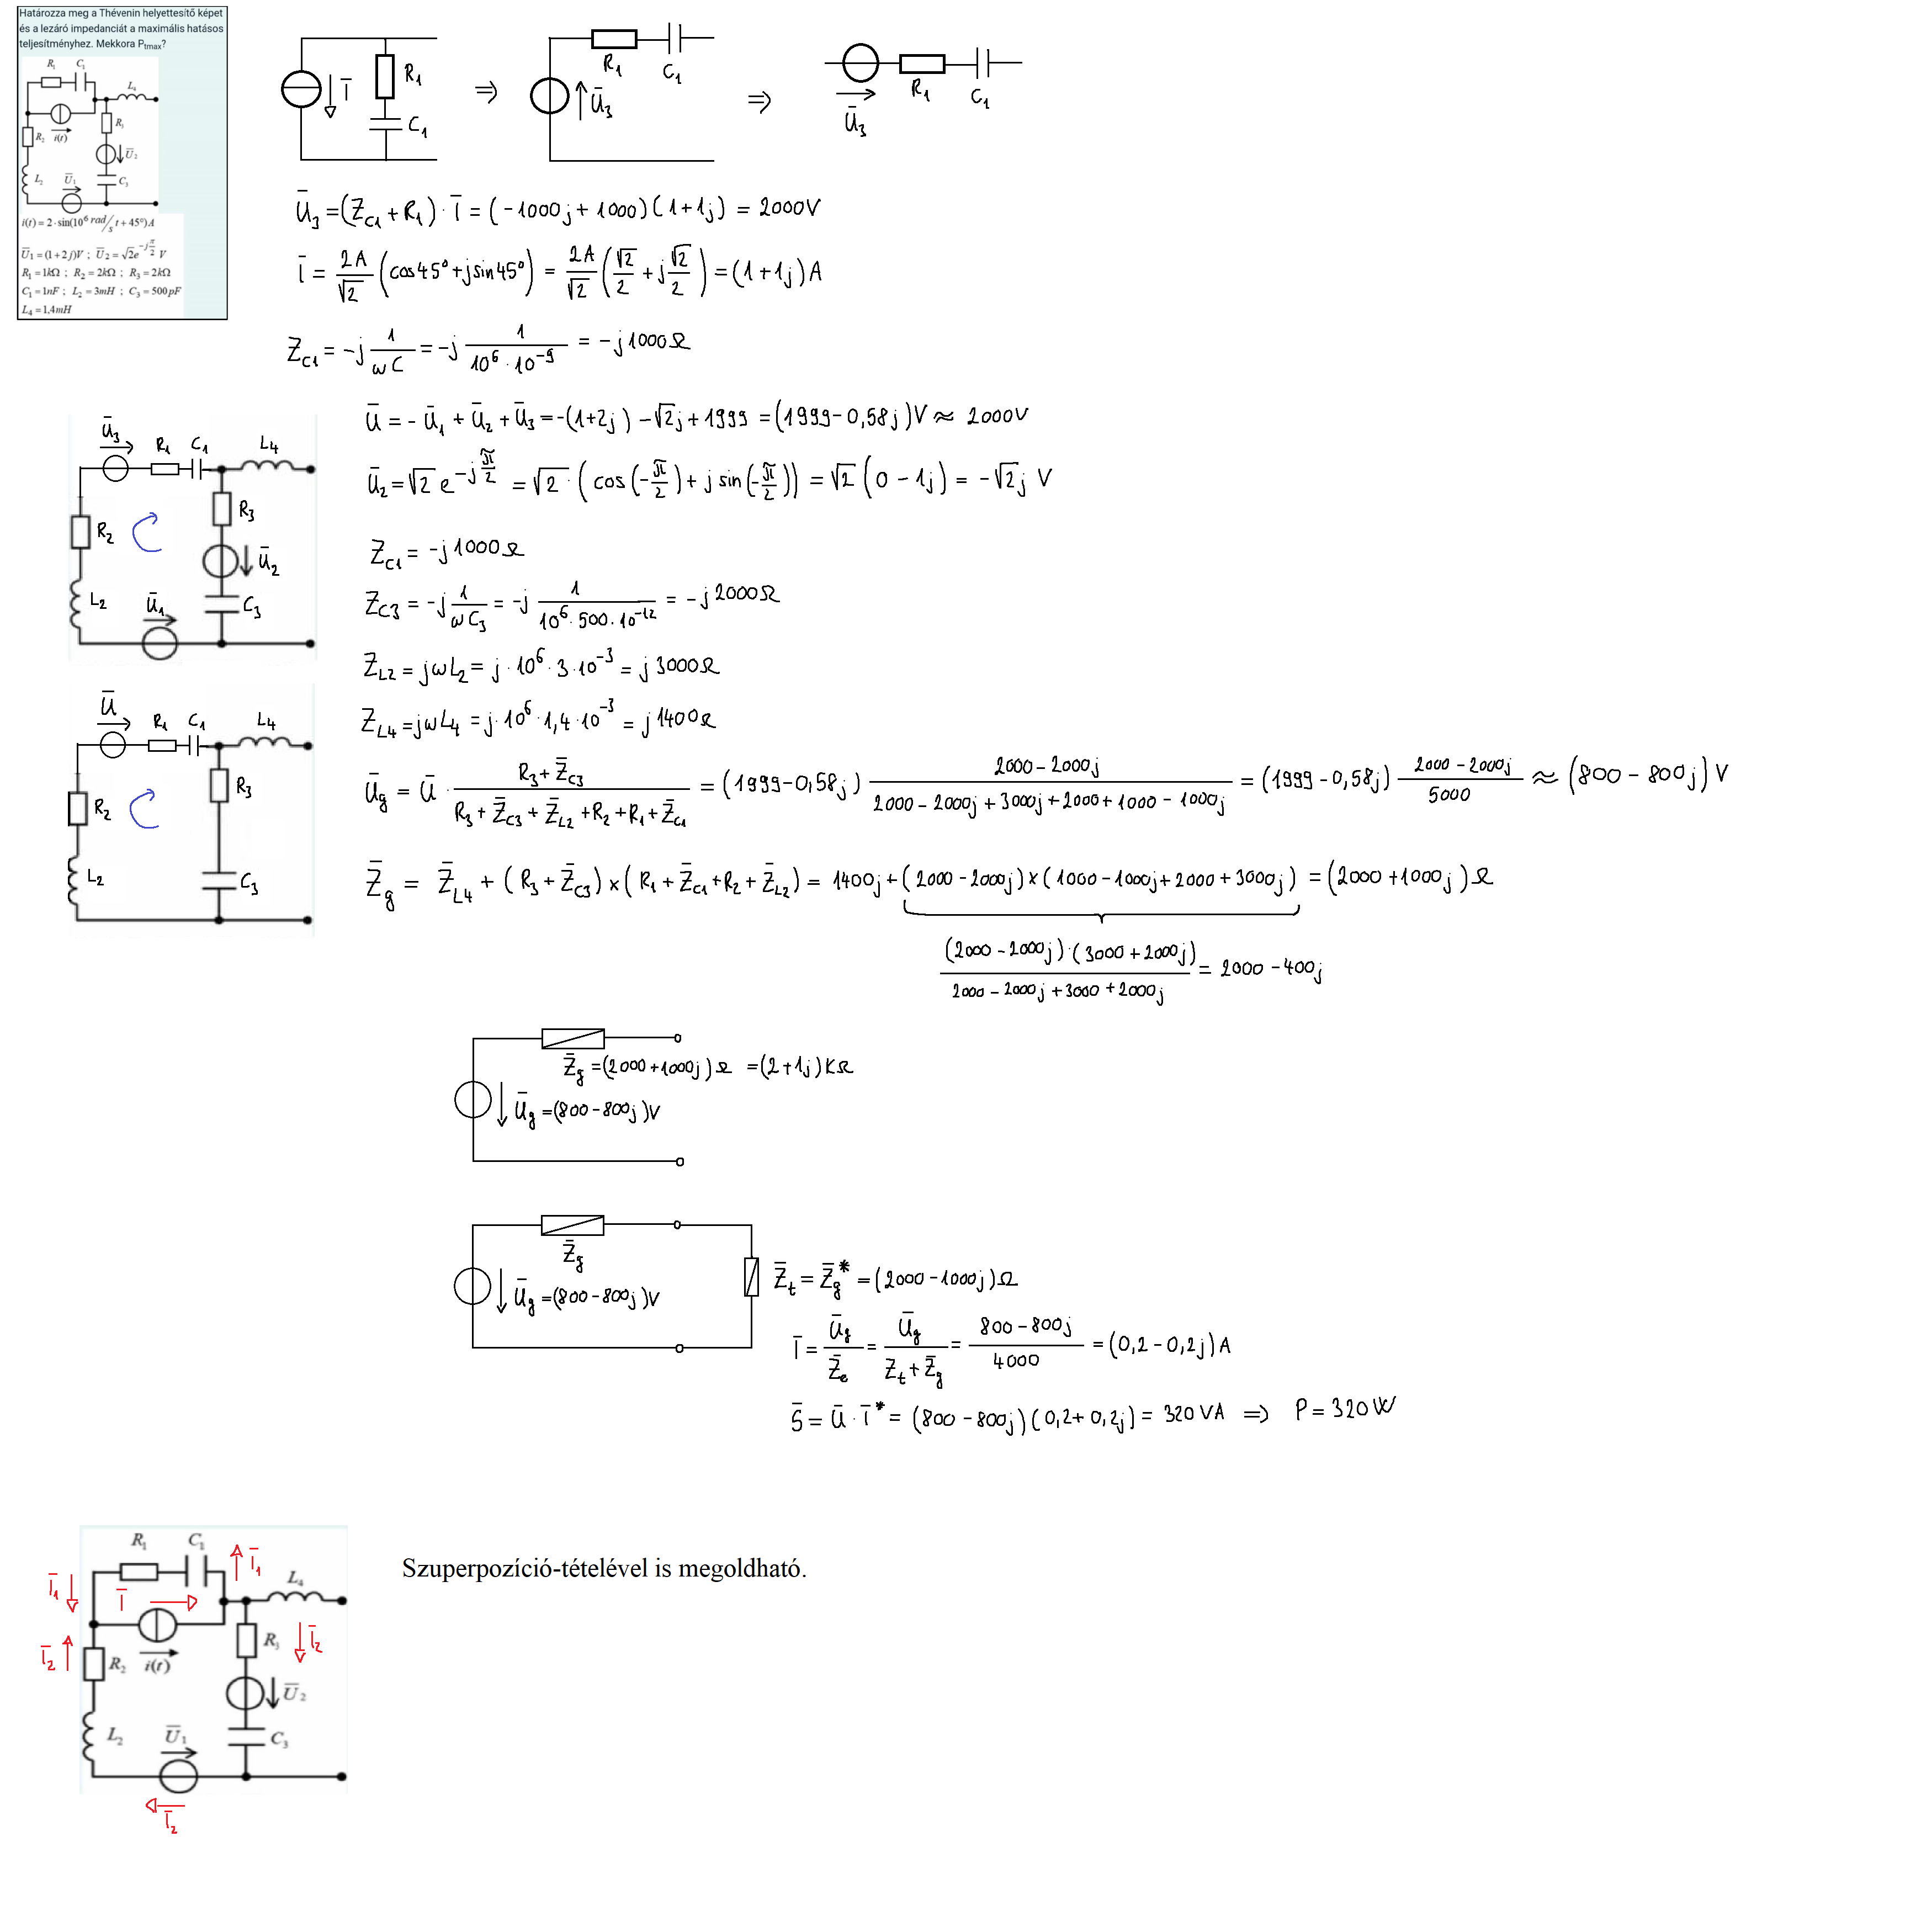 Határozza meg a Thévenin helyettesítő képet
és a lezáró impedanciát a maximális hatásos
teljesítményhez. Mekkora P_tmax?
R₁ C₁
L₄
R₃
R₂ i(t)
U̅₂
L₂ U̅₁ C₃
i(t) = 2·sin(10⁶ rad/s t + 45°)A
U̅₁ = (1+2j)V ; U̅₂ = √2e^(-jπ/2) V
R₁ = 1kΩ ; R₂ = 2kΩ ; R₃ = 2kΩ
C₁ = 1nF ; L₂ = 3mH ; C₃ = 500pF
L₄ = 1,4mH
I̅ R₁ C₁ ⇒ U̅₃ R₁ C₁ ⇒ U̅₃ R₁ C₁
U̅₃ = (Z_C1 + R₁) · I̅ = (-1000j + 1000)(1+1j) = 2000V
I̅ = 2A/√2 (cos45° + jsin45°) = 2A/√2 (√2/2 + j √2/2) = (1+1j)A
Z_C1 = -j 1/ωC = -j 1/(10⁶·10⁻⁹) = -j1000Ω
U̅ = -U̅₁ + U̅₂ + U̅₃ = -(1+2j) - √2j + 1999 = (1999-0,58j)V ≈ 2000V
U̅₂ = √2 e^(-jπ/2) = √2 · (cos(-π/2) + j sin(-π/2)) = √2 (0 - 1j) = -√2j V
U̅₃ R₁ C₁ L₄
R₂ R₃
U̅₂
L₂ U̅₁ C₃
Z_C1 = -j1000Ω
Z_C3 = -j 1/ωC₃ = -j 1/(10⁶·500·10⁻¹²) = -j2000Ω
Z_L2 = jωL₂ = j·10⁶·3·10⁻³ = j3000Ω
Z_L4 = jωL₄ = j·10⁶·1,4·10⁻³ = j1400Ω
U̅ R₁ C₁ L₄
R₂ R₃
L₂ C₃
U̅g = U̅ · (R₃ + Z̅_C3)/(R₃ + Z̅_C3 + Z̅_L2 + R₂ + R₁ + Z̅_C1) = (1999-0,58j) (2000-2000j)/(2000-2000j+3000j+2000+1000-1000j) = (1999-0,58j) (2000-2000j)/5000 ≈ (800-800j)V
Z̅g = Z̅_L4 + (R₃ + Z̅_C3) × (R₁ + Z̅_C1 + R₂ + Z̅_L2) = 1400j + (2000-2000j) × (1000-1000j+2000+3000j) = (2000+1000j)Ω
(2000-2000j)·(3000+2000j)/(2000-2000j+3000+2000j) = 2000-400j
Z̅g = (2000+1000j)Ω = (2+1j)KΩ
U̅g = (800-800j)V
Z̅g
U̅g = (800-800j)V
Z̅t = Z̅g* = (2000-1000j)Ω
I̅ = U̅g/Z̅e = U̅g/(Zt + Z̅g) = (800-800j)/4000 = (0,2-0,2j)A
S̅ = U̅ · I̅* = (800-800j)(0,2+0,2j) = 320VA ⇒ P = 320W
Szuperpozíció-tételével is megoldható.
R₁ C₁ I̅₁
I̅₁ I̅ L₄
I̅₂ R₂ i(t) R₃ I̅₂
U̅₂
L₂ U̅₁ C₃
I̅₂